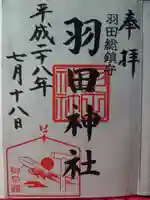 奉拝
羽田総鎮守
羽田神社
平成二八年
七月十八日